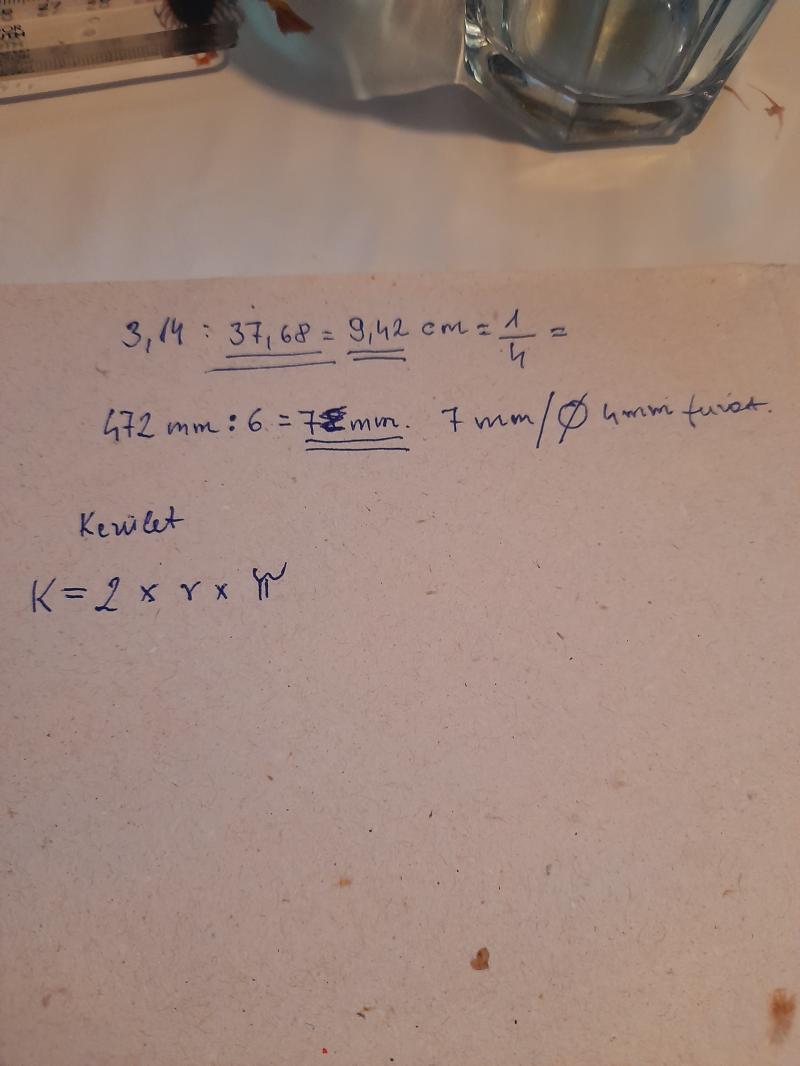 3,14 : 37,68 = 9,42 cm = 1/4 =
472 mm : 6 = 78 mm. 7 mm/Ø 4mm furat.
Kerület
K = 2 x r x π